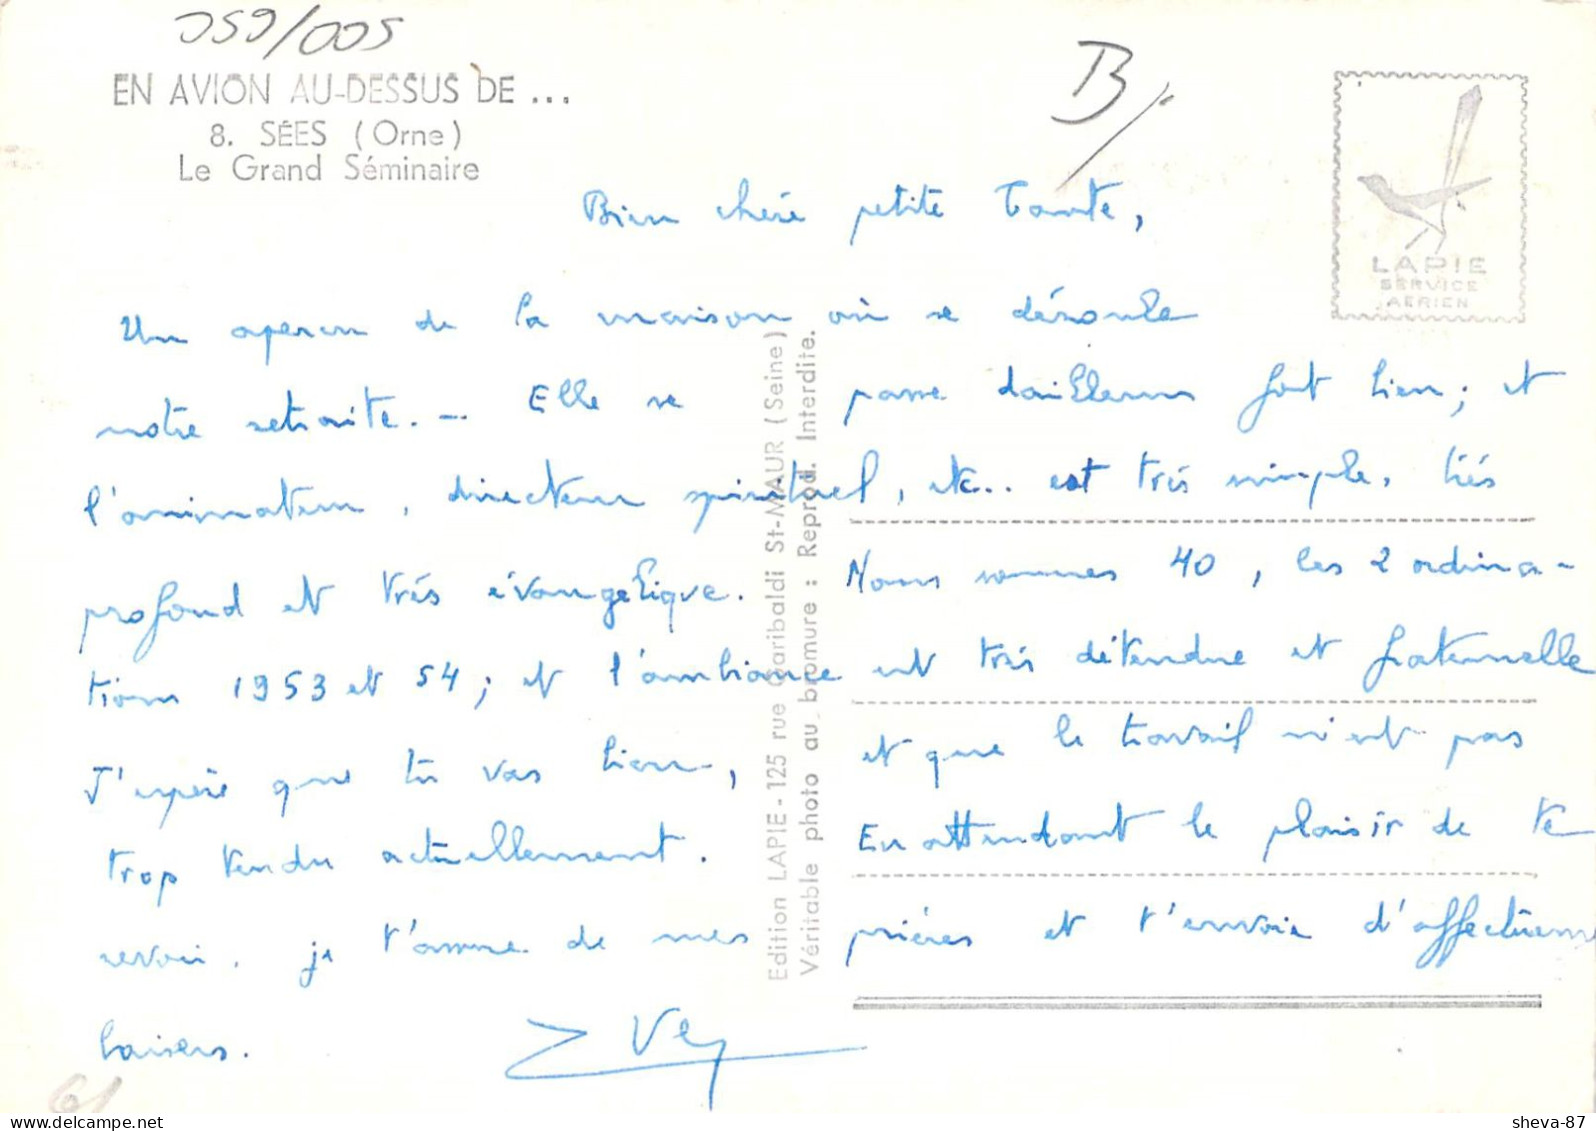 059/005
EN AVION AU-DESSUS DE ...
8. SÉES (Orne)
Le Grand Séminaire
B/.
LAPIE
SERVICE
AERIEN
Bien chère petite Tante,
Un aperçu de la maison où se déroule
notre retraite. – Elle se passe d'ailleurs fort bien ; et
l'animateur, directeur spirituel, etc... est très simple, très
profond et très évangélique. Nous sommes 40, les 2 ordina-
tions 1953 et 54 ; et l'ambiance est très détendue et fraternelle
J'espère que tu vas bien, et que le travail n'est pas
trop tendu actuellement. En attendant le plaisir de te
revoir, je t'assure de mes prières et t'envoie d'affectueux
baisers.
Edition LAPIE - 125 rue Garibaldi St-MAUR (Seine)
Véritable photo au bromure : Reprod. Interdite.
61
sheva-87